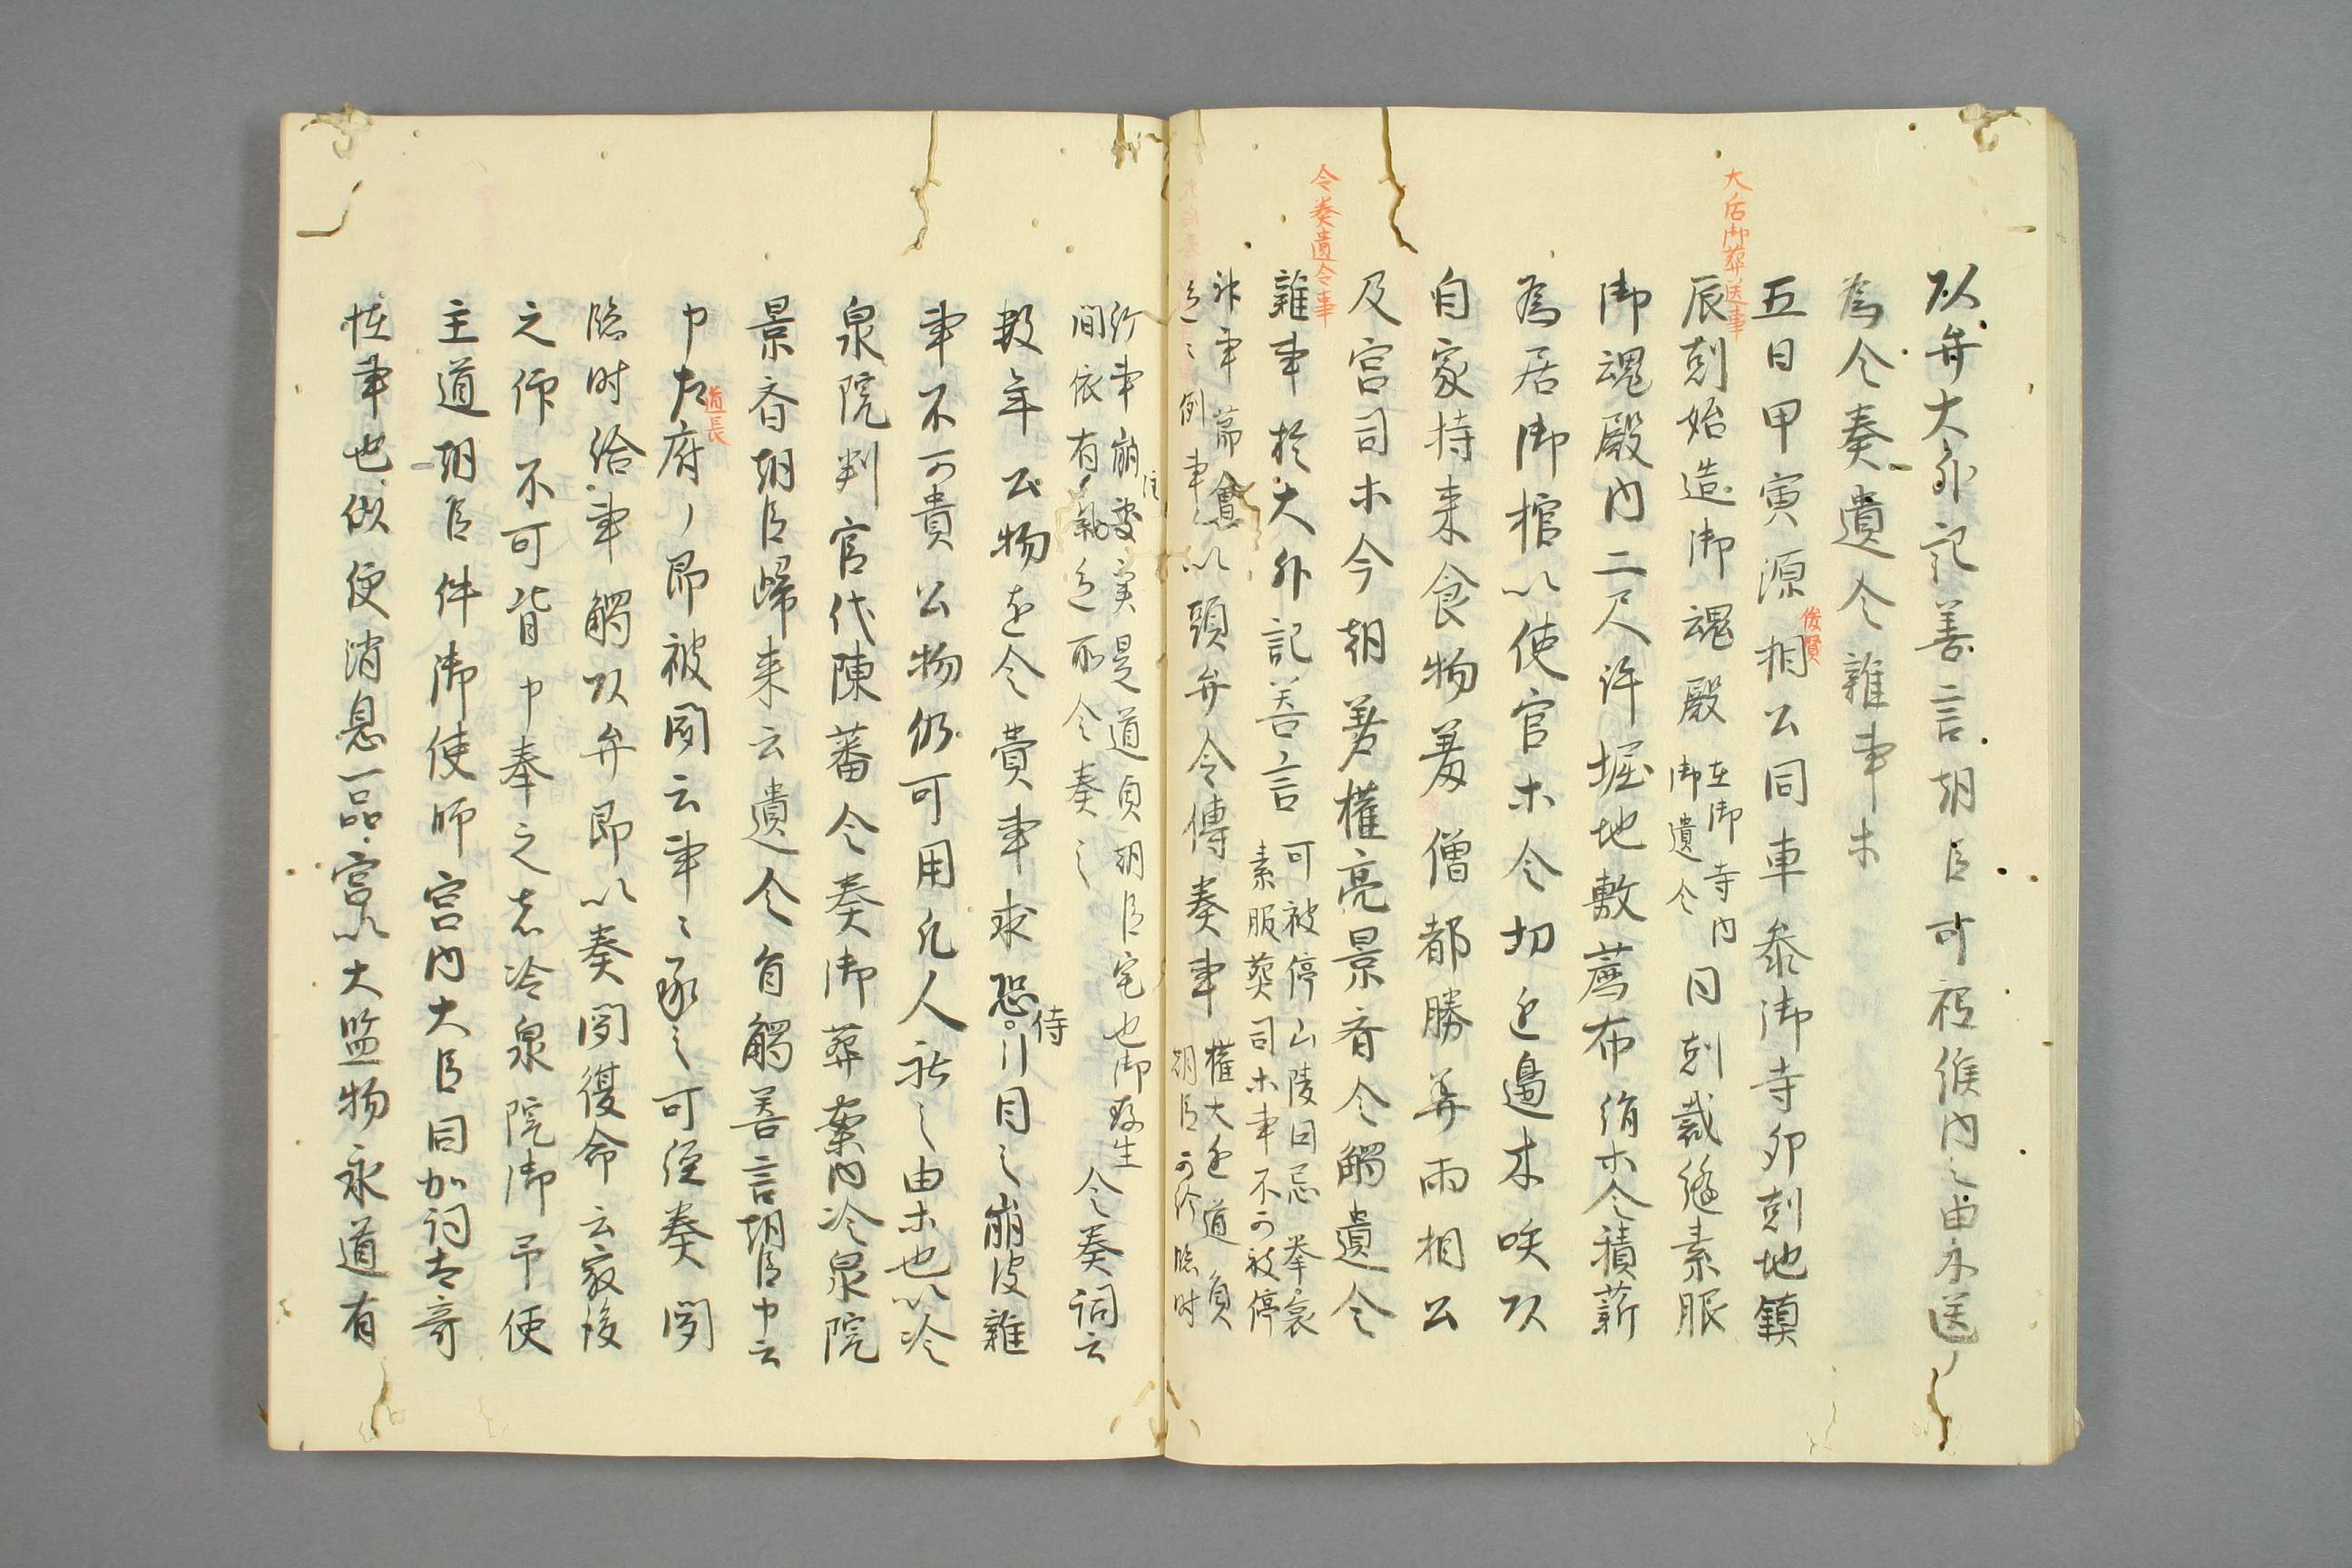 以弁大外記善言朝臣可被候内之由示送了
為令奏遺令雑事木
五日甲寅源相公同車参御寺卯剋地鎮
俊賢
大后御葬送事
辰剋始造御魂殿
在御寺内
御遺令
同剋裁縫素服
御魂殿内二尺許堀地敷薦布絹木令積薪
為居御棺以使官木令切近邉木咲以
自家持来食物羞僧都勝筭両相公
及宮司木今朝差權亮景斉令觸遺令
令奏遺令事
雑事於大外記善言
可被停山陵国忌挙哀
素服葬司木事不可被停
以頭弁令傳奏事
權大進道貞
朝臣可行臨時
行事崩
実是道貞朝臣宅也御産生
間依有
令奏之
令奏詞云
数年公物を令費事求恐侍
目之崩後雑
事不可貴公物仍可用凡人
之由木也以冷
泉院判官代陳蕃令奏御葬案内冷泉院
景斉朝臣歸来云遺令旨觸善言朝臣申云
申左府了即被聞云事々承之可経奏聞
道長
臨時給事觸以弁即以奏聞復命云最後
之作不可背申奉之者冷泉院御弔使
主道朝臣件御使帥宮内大臣同加詞
恠事也似便消息一品宮以大監物永道有